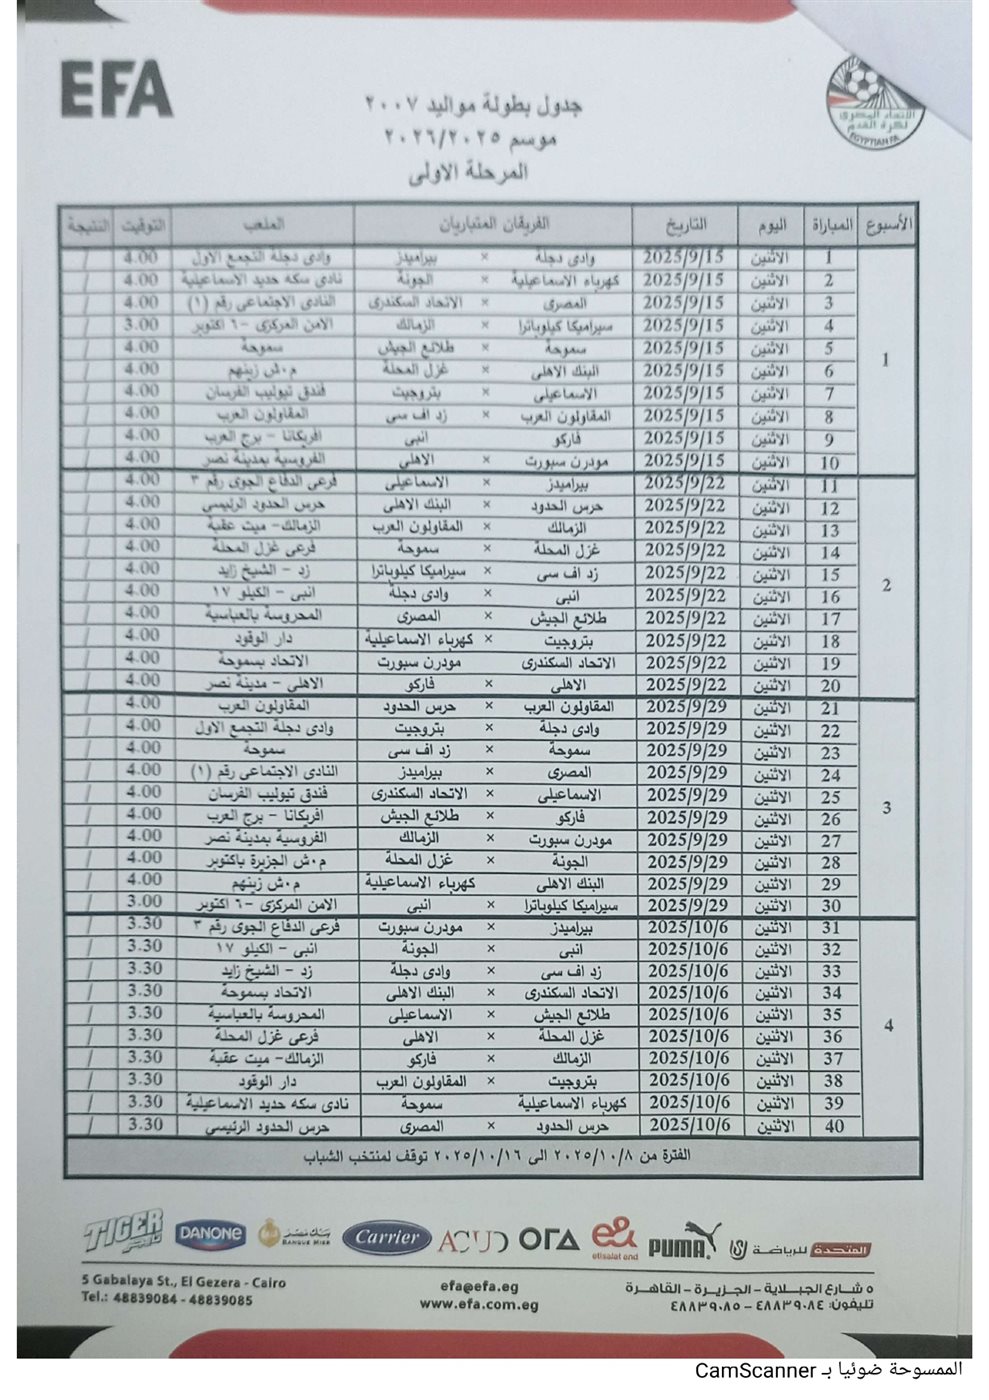 EFA
الاتحاد المصرى
لكرة القدم
EGYPTIAN FA
جدول بطولة مواليد ٢٠٠٧
موسم ٢٠٢٦/٢٠٢٥
المرحلة الاولى
الأسبوع المباراة اليوم التاريخ الفريقان المتباريان الملعب التوقيت النتيجة
1
1 الاثنين 2025/9/15 وادى دجلة × بيراميدز وادى دجلة التجمع الاول 4.00 /
2 الاثنين 2025/9/15 كهرباء الاسماعيلية × الجونة نادى سكه حديد الاسماعيلية 4.00 /
3 الاثنين 2025/9/15 المصرى × الاتحاد السكندرى النادى الاجتماعى رقم (١) 4.00 /
4 الاثنين 2025/9/15 سيراميكا كيلوباترا × الزمالك الامن المركزى -٦ اكتوبر 3.00 /
5 الاثنين 2025/9/15 سموحة × طلائع الجيش سموحة 4.00 /
6 الاثنين 2025/9/15 البنك الاهلى × غزل المحلة م٠ش زينهم 4.00 /
7 الاثنين 2025/9/15 الاسماعيلى × بتروجيت فندق تيوليب الفرسان 4.00 /
8 الاثنين 2025/9/15 المقاولون العرب × زد اف سى المقاولون العرب 4.00 /
9 الاثنين 2025/9/15 فاركو انبى افريكانا - برج العرب 4.00 /
10 الاثنين 2025/9/15 مودرن سبورت × الاهلى الفروسية بمدينة نصر 4.00 /
2
11 الاثنين 2025/9/22 بيراميدز × الاسماعيلى فرعى الدفاع الجوى رقم ٣ 4.00 /
12 الاثنين 2025/9/22 حرس الحدود × البنك الاهلى حرس الحدود الرئيسى 4.00 /
13 الاثنين 2025/9/22 الزمالك × المقاولون العرب الزمالك- ميت عقبة 4.00 /
14 الاثنين 2025/9/22 غزل المحلة × سموحة فرعى غزل المحلة 4.00 /
15 الاثنين 2025/9/22 زد اف سى × سيراميكا كيلوباترا زد - الشيخ زايد 4.00 /
16 الاثنين 2025/9/22 انبى × وادى دجلة انبى - الكيلو ١٧ 4.00 /
17 الاثنين 2025/9/22 طلائع الجيش × المصرى المحروسة بالعباسية 4.00 /
18 الاثنين 2025/9/22 بتروجيت × كهرباء الاسماعيلية دار الوقود 4.00 /
19 الاثنين 2025/9/22 الاتحاد السكندرى مودرن سبورت الاتحاد بسموحة 4.00 /
20 الاثنين 2025/9/22 الاهلى × فاركو الاهلى - مدينة نصر 4.00 /
3
21 الاثنين 2025/9/29 المقاولون العرب × حرس الحدود المقاولون العرب 4.00 /
22 الاثنين 2025/9/29 وادى دجلة × بتروجيت وادى دجلة التجمع الاول 4.00 /
23 الاثنين 2025/9/29 سموحة × زد اف سى سموحة 4.00 /
24 الاثنين 2025/9/29 المصرى × بيراميدز النادى الاجتماعى رقم (١) 4.00 /
25 الاثنين 2025/9/29 الاسماعيلى × الاتحاد السكندرى فندق تيوليب الفرسان 4.00 /
26 الاثنين 2025/9/29 فاركو × طلائع الجيش افريكانا - برج العرب 4.00 /
27 الاثنين 2025/9/29 مودرن سبورت × الزمالك الفروسية بمدينة نصر 4.00 /
28 الاثنين 2025/9/29 الجونة × غزل المحلة م٠ش الجزيرة باكتوبر 4.00 /
29 الاثنين 2025/9/29 البنك الاهلى كهرباء الاسماعيلية م٠ش زينهم 4.00 /
30 الاثنين 2025/9/29 سيراميكا كيلوباترا × انبى الامن المركزى -٦ اكتوبر 3.00 /
4
31 الاثنين 2025/10/6 بيراميدز × مودرن سبورت فرعى الدفاع الجوى رقم ٣ 3.30 /
32 الاثنين 2025/10/6 انبى × الجونة انبى - الكيلو ١٧ 3.30 /
33 الاثنين 2025/10/6 زد اف سى × وادى دجلة زد - الشيخ زايد 3.30 /
34 الاثنين 2025/10/6 الاتحاد السكندرى × البنك الاهلى الاتحاد بسموحة 3.30 /
35 الاثنين 2025/10/6 طلائع الجيش × الاسماعيلى المحروسة بالعباسية 3.30 /
36 الاثنين 2025/10/6 غزل المحلة × الاهلى فرعى غزل المحلة 3.30 /
37 الاثنين 2025/10/6 الزمالك × فاركو الزمالك- ميت عقبة 3.30 /
38 الاثنين 2025/10/6 بتروجيت × المقاولون العرب دار الوقود 3.30 /
39 الاثنين 2025/10/6 كهرباء الاسماعيلية × سموحة نادى سكه حديد الاسماعيلية 3.30 /
40 الاثنين 2025/10/6 حرس الحدود × المصرى حرس الحدود الرئيسى 3.30 /
الفترة من ٢٠٢٥/١٠/٨ الى ٢٠٢٥/١٠/١٦ توقف لمنتخب الشباب
TIGER تايجر DANONE بنك مصر BANQUE MISR Carrier ACUD ORA etisalat and PUMA المتحدة للرياضة
5 Gabalaya St., El Gezera - Cairo
Tel.: 48839084 - 48839085
efa@efa.eg
www.efa.com.eg
٥ شارع الجبلاية - الجزيرة - القاهرة
تليفون: ٤٨٨٣٩٠٨٤ - ٤٨٨٣٩٠٨٥
الممسوحة ضوئيا بـ CamScanner